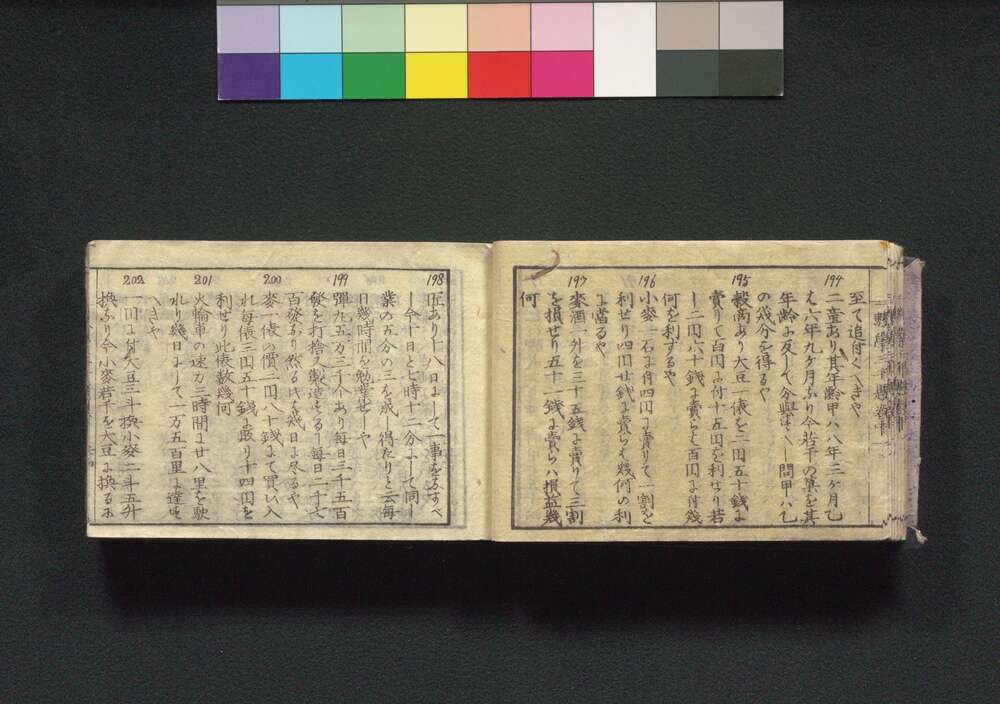 至て追付くへきや
194
二童あり其年齢甲ハ八年二ヶ月乙
は六年九ヶ月なり今若干の菓を其
年齢に反して分與すへし問甲ハ乙
の幾分を得るや
195
穀商あり大豆一俵を二円五十銭に
賣りて百円に付十五円を利せり若
し二円六十銭に賣らは百円に付幾
何を利するや
196
小麥一石に付四円に賣りて一割を
利せり四円廿銭に賣らは幾何の利
に當るや
197
麥酒一升を三十五銭に賣りて三割
を損せり五十一銭に賣らハ損益幾
何
198
匠あり十八日にして一事を為すへ
し今十日と七時十二分にして同し
業の五分の三を成し得たりと云毎
日幾時間を勉強せしや
199
弾丸五万三千介あり毎日三千五百
發を打捨又製造する毎日二千七
百發なり然るは幾日に尽るや
200
麥一俵の價二円八十銭にて買ひ入
れ毎俵三円五十銭に取り十四円を
利せり此俵数幾何
201
火輪車の速力二時間に廿八里を駛
れり幾日にして一万五百里に達す
へきや
202
一円に付大豆三斗換小麥二斗五升
換なり今小麥若干を大豆に換るに